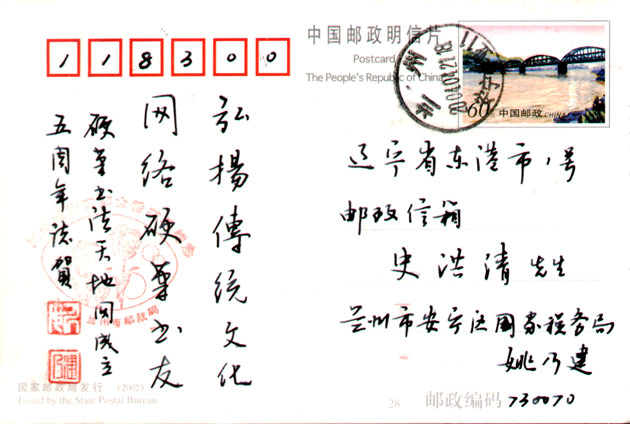 118300
中国邮政明信片
Postcard
The People's Republic of China
60
中国邮政 CHINA
弘揚傳统文化
网络硬筆书友
硕笔书法天地网成立
五周年誌賀
辽宁省东港市1号
邮政信箱
史洪清先生
兰州市安宁区国家税务局
姚乃建
国家邮政局发行 (2002)
Issued by the State Postal Bureau
28
邮政编码 730070